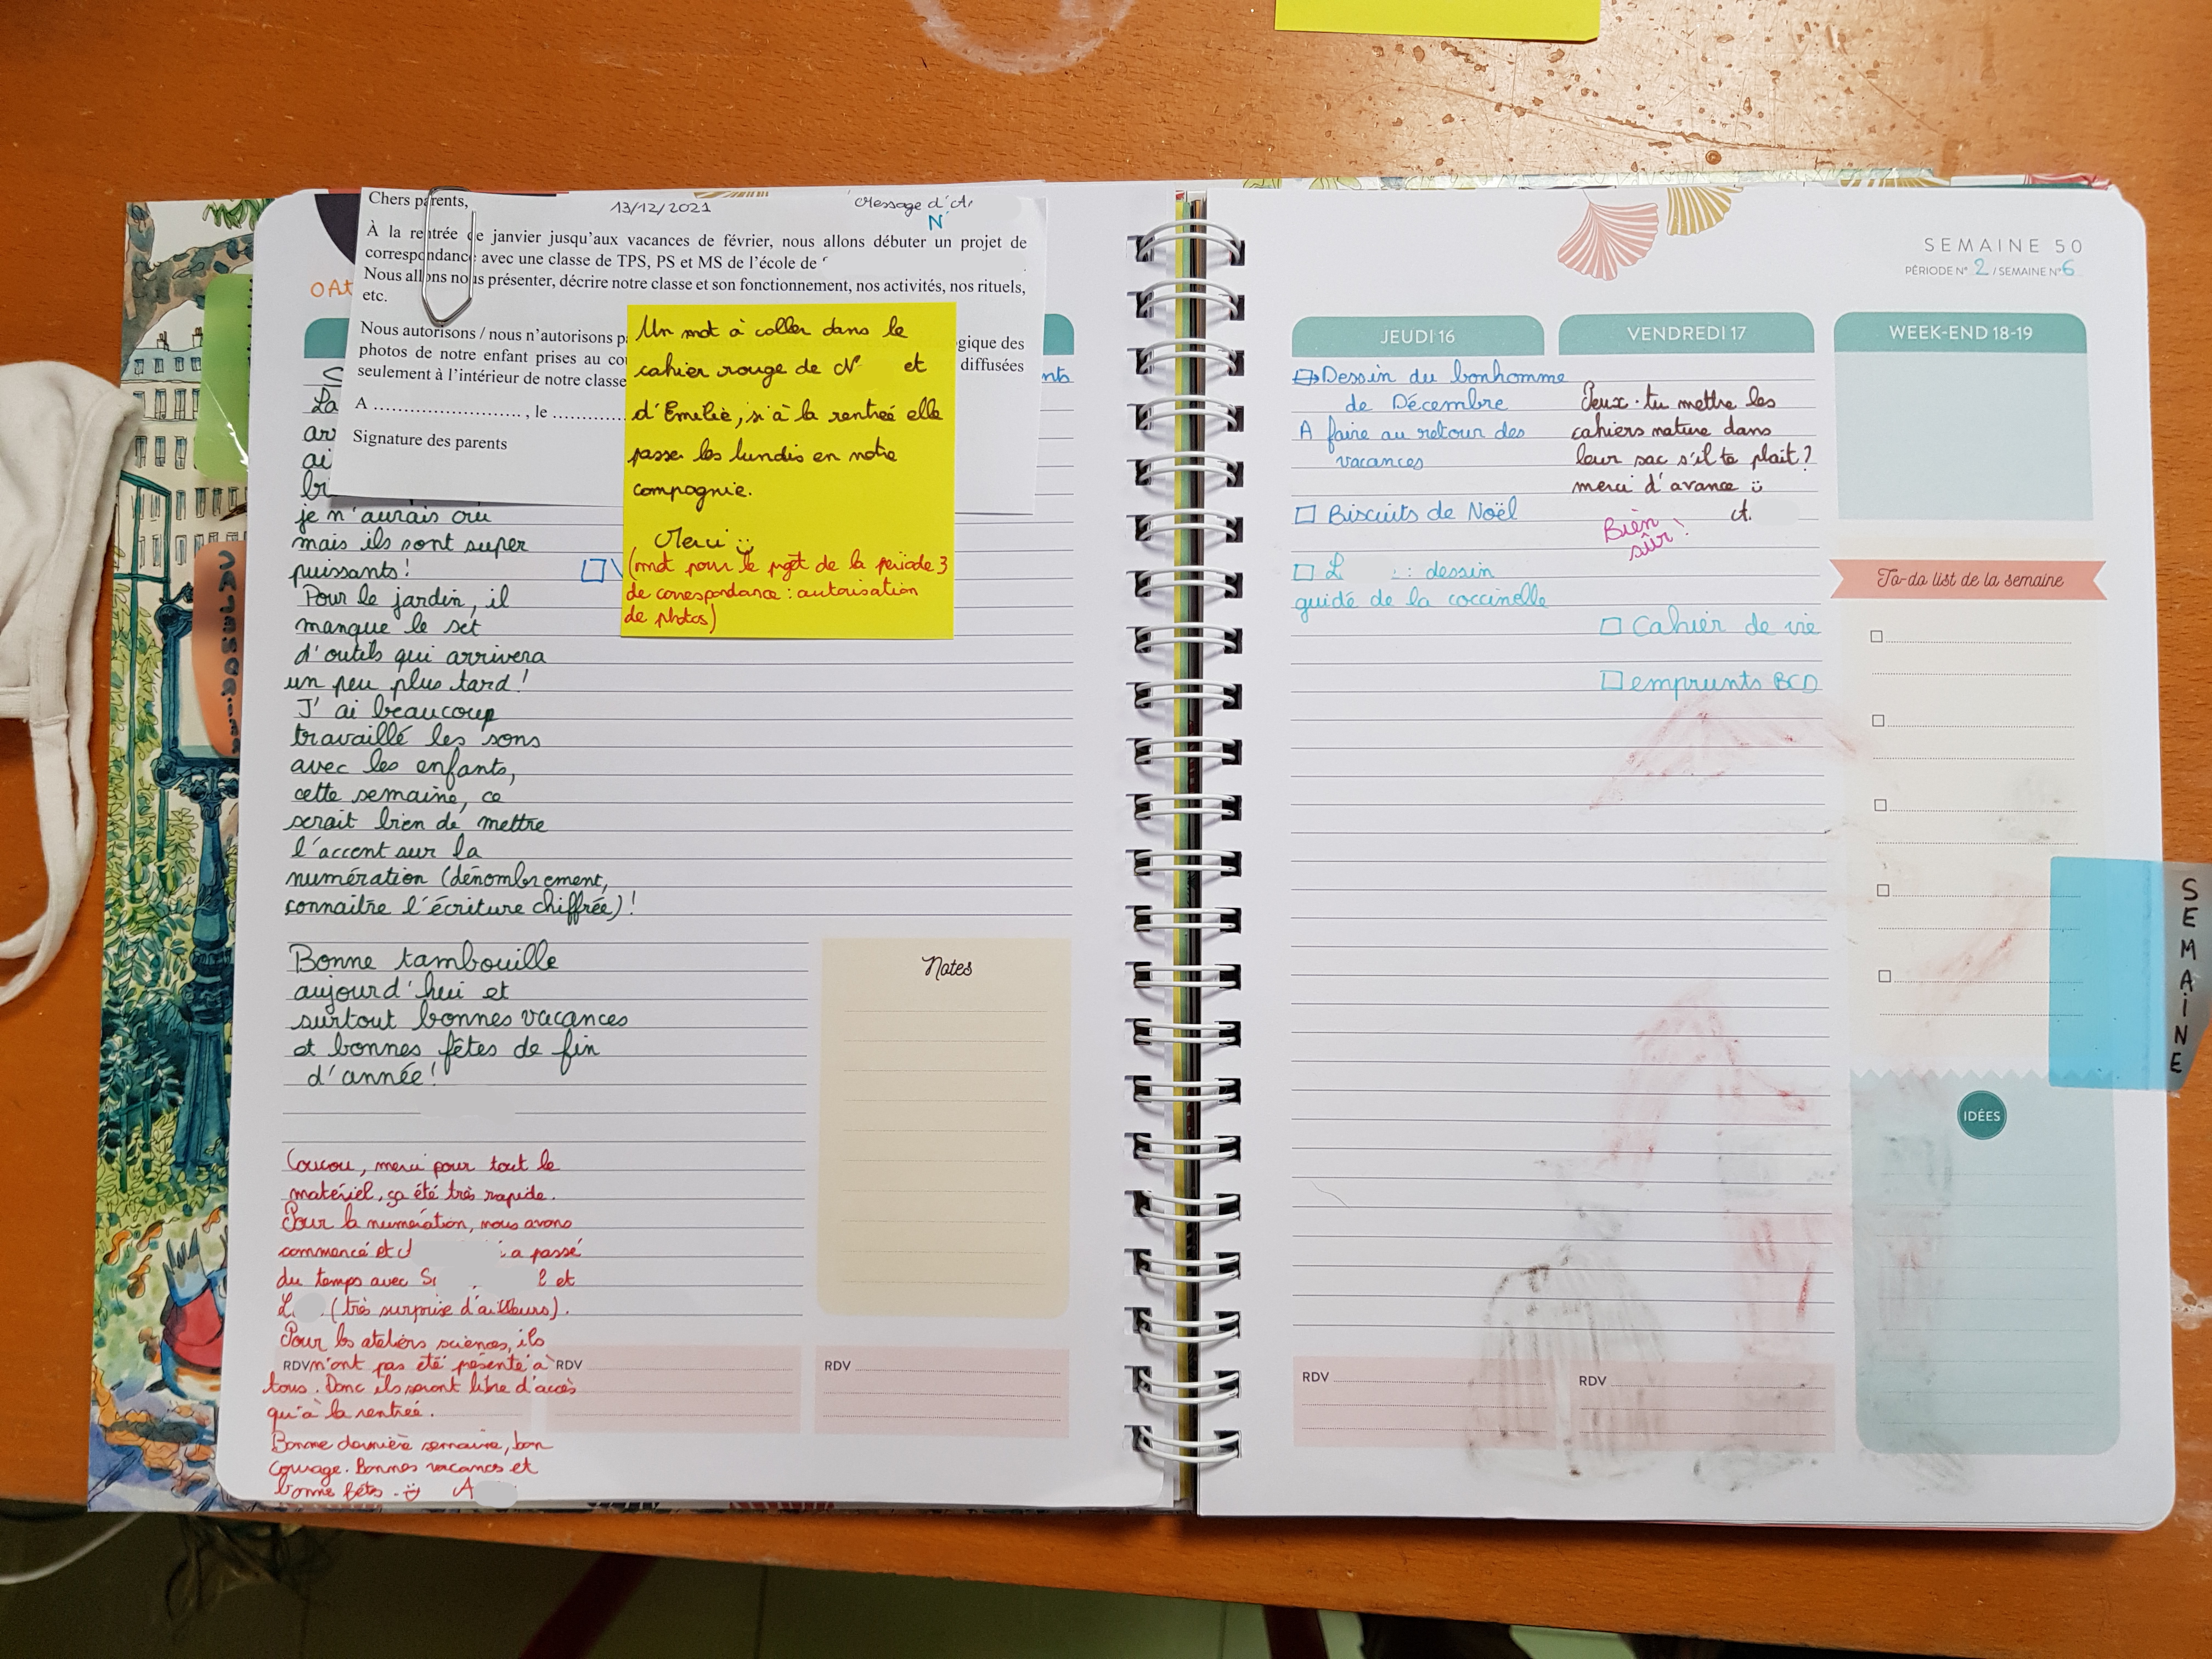 Chers parents,
13/12/2021
Message d'A
N
À la rentrée de janvier jusqu'aux vacances de février, nous allons débuter un projet de
correspondance avec une classe de TPS, PS et MS de l'école de
Nous allons nous présenter, décrire notre classe et son fonctionnement, nos activités, nos rituels,
etc.
Nous autorisons / nous n'autorisons p
gique des
photos de notre enfant prises au co
diffusées
seulement à l'intérieur de notre classe
A ........................ , le ............
Signature des parents
Un mot à coller dans le
cahier rouge de N et
d'Emilie, si à la rentrée elle
passe les lundis en notre
compagnie.
Merci
(mot pour le projet de la période 3
de correspondance : autorisation
de photos)
OAt
nts
La
arr
ai
br
je n'aurais cru
mais ils sont super
puissants !
Pour le jardin, il
manque le set
d'outils qui arrivera
un peu plus tard !
J'ai beaucoup
travaillé les sons
avec les enfants,
cette semaine, ce
serait bien de mettre
l'accent sur la
numération (dénombrement,
connaitre l'écriture chiffrée) !
Bonne tambouille
aujourd'hui et
surtout bonnes vacances
et bonnes fêtes de fin
d'année !
Coucou, merci pour tout le
matériel, ça été très rapide.
Pour la numération, nous avons
commencé et a passé
du temps avec et
L. (très surprise d'ailleurs).
Pour les ateliers sciences, ils
n'ont pas été présenté à
tous. Donc ils seront libre d'accès
qu'à la rentrée.
Bonne dernière semaine, bon
courage. Bonnes vacances et
bonne fêtes. A
Notes
RDV
RDV
RDV
SEMAINE 50
PÉRIODE N° 2 / SEMAINE N° 6
JEUDI 16
Dessin du bonhomme
de Décembre
A faire au retour des
vacances
Biscuits de Noël
L : dessin
guidé de la coccinelle
VENDREDI 17
Peux-tu mettre les
cahiers nature dans
leur sac s'il te plait ?
merci d'avance
A.
Bien
sûr !
Cahier de vie
emprunts BCD
RDV
RDV
WEEK-END 18-19
To-do list de la semaine
IDÉES
SEMAINE